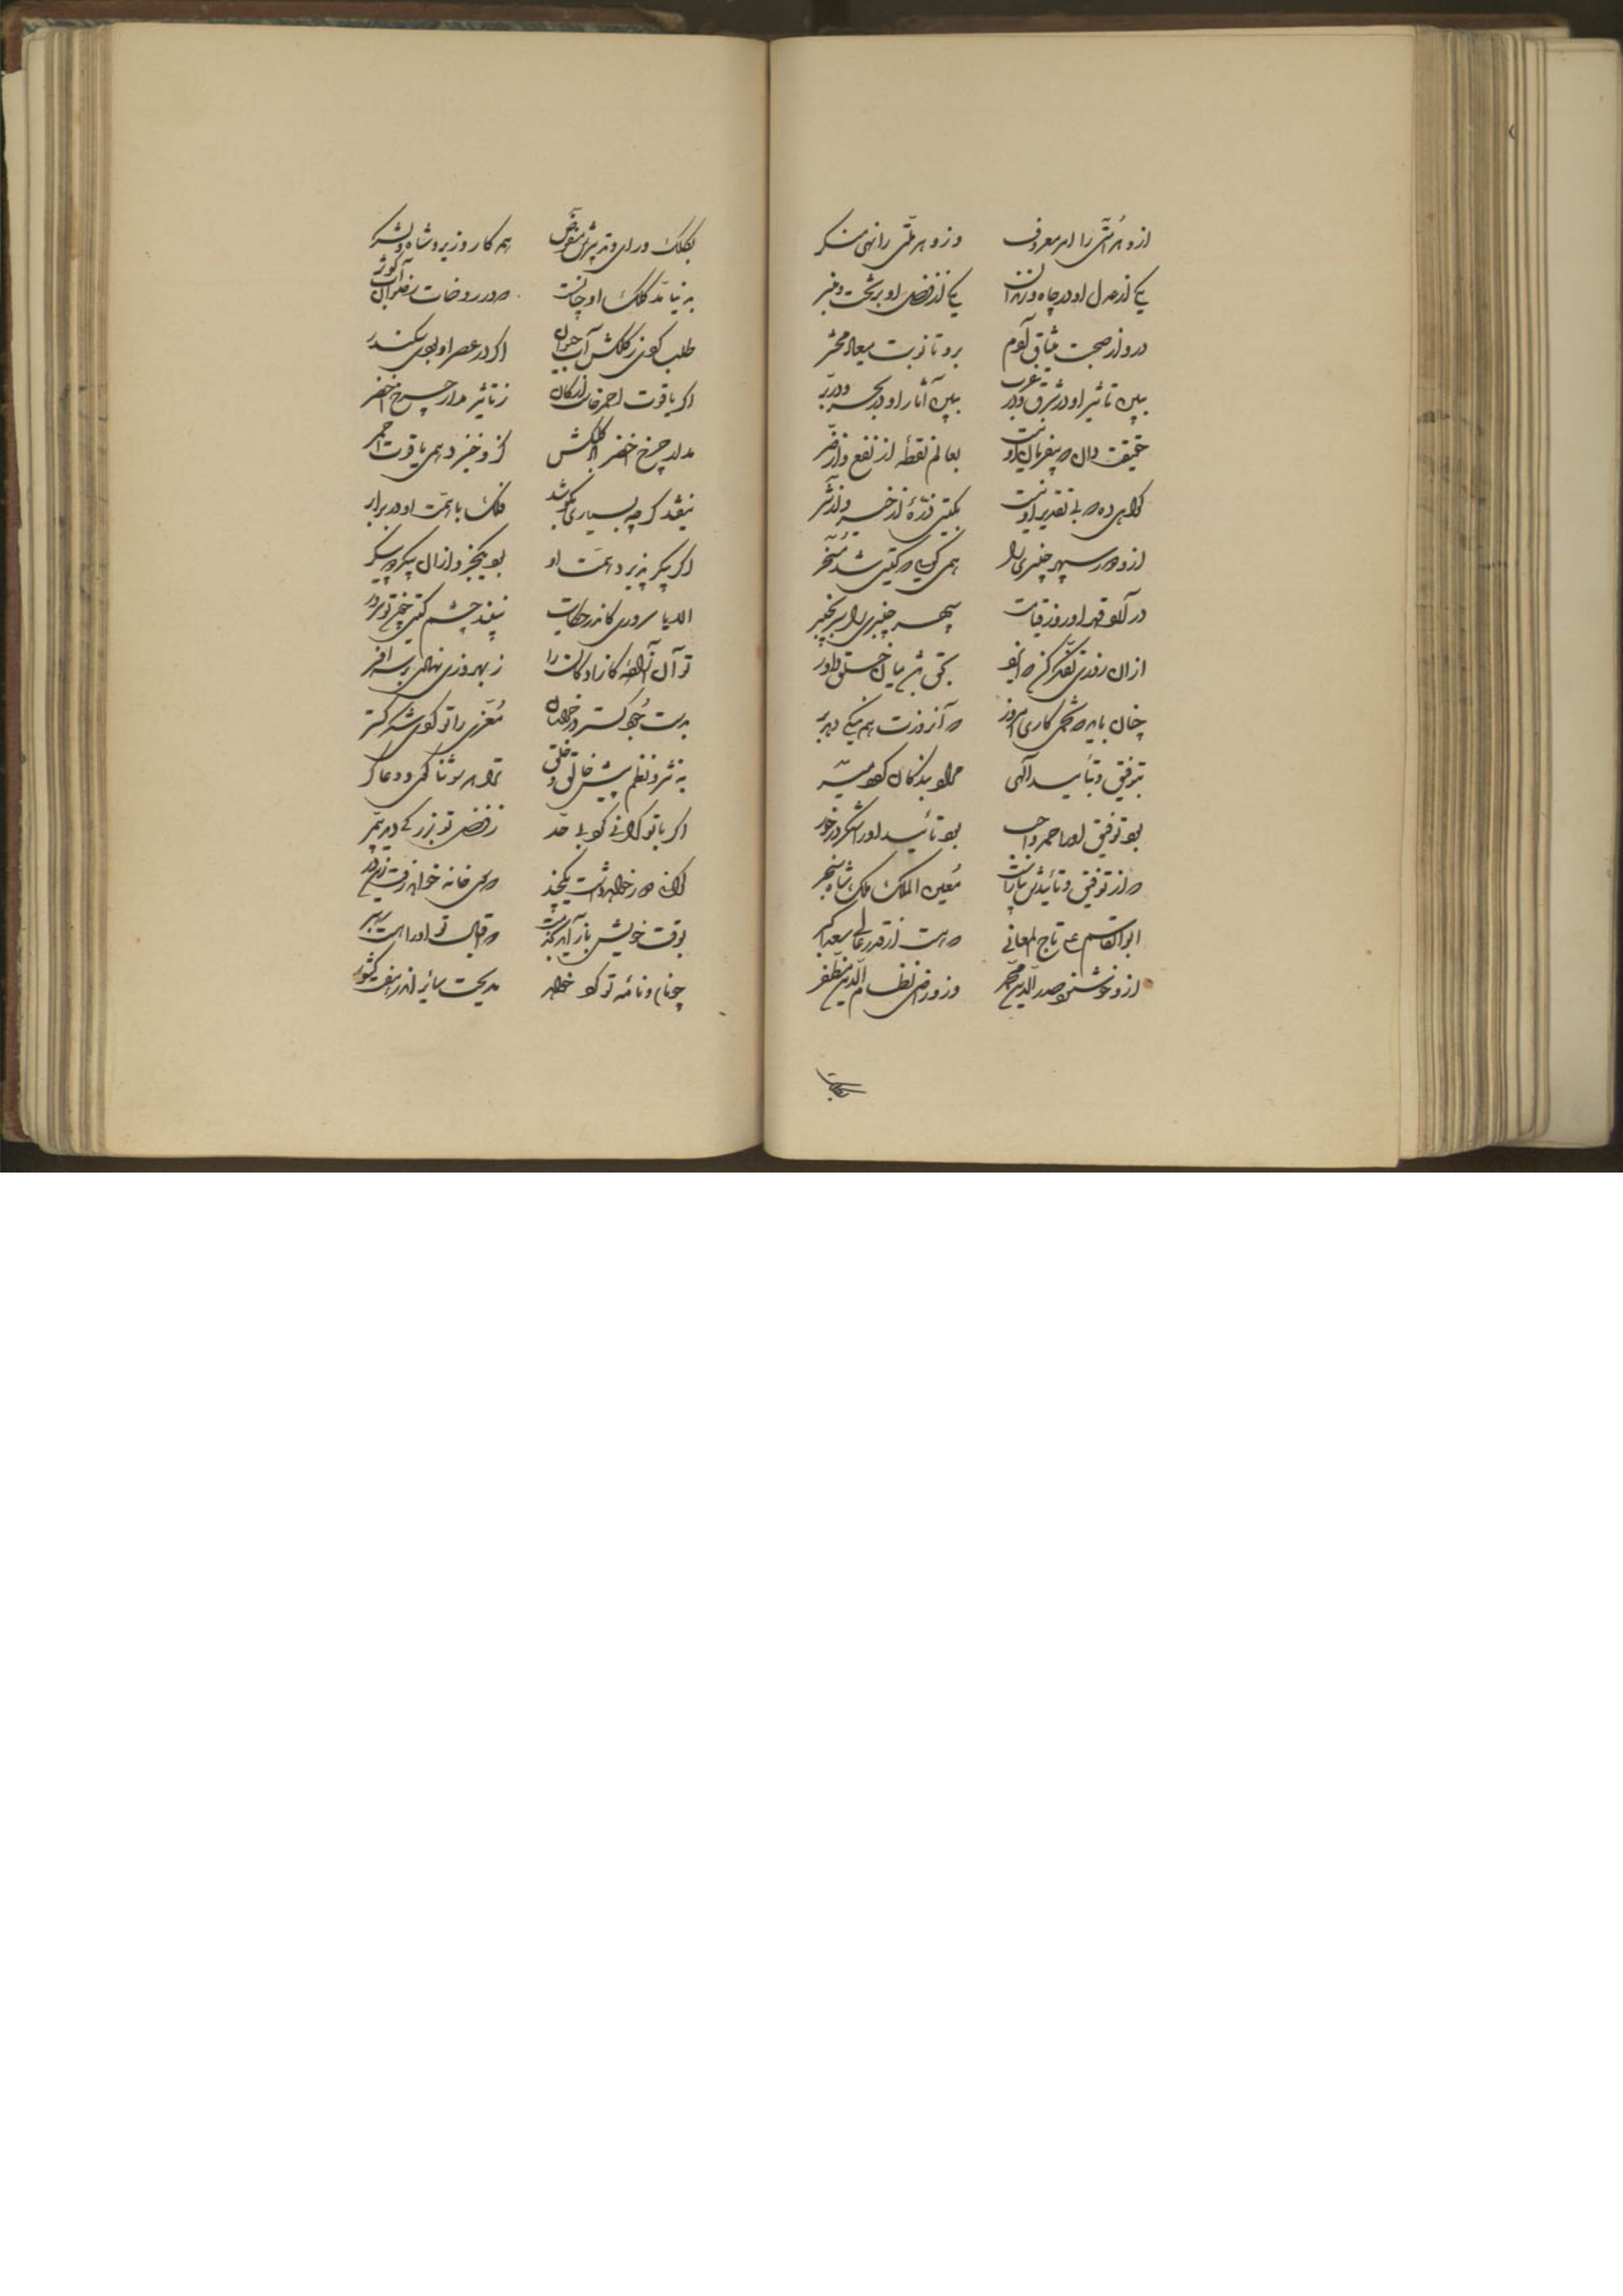 ازو هر امتی را امر معروف وزو هر ملتی را نهی منکر
یکی از عدل او در چاه و زندان یکی از فضل او بر تخت و منبر
درو از صحبت میثاق آدم برو تا نوبت میعاد محشر
ببین تأثیر او در شرق و در غرب ببین آثار او در بحر و در بر
حقیقت دان که بیفرمان او نیست بعالم نقطهٔ از نفع و از ضر
گواهی ده که بی تقدیر او نیست بگیتی ذرهٔ از خیر و از شر
ازو دور سپهر چنبری را همی گوید که گیتی شد مسخر
در آرد قهر او روز قیامت سپهر چنبری را سر بچنبر
ازان روزی تفکر کن که ایزد بحق باشد میان خلق داور
چنان باید که تخمی کاری امروز که آنروزت همه نیکی دهد بر
بتوفیق و بتأیید الهی مراد بندگان گردد میسر
بود توفیق او را حمد واجب بود تأیید او را شکر درخور
که از توفیق و تأییدش بیاراست معین الملک ملک شاه سنجر
ابوالقاسم علی تاج المعانی که هست از قدر عالی سعد اکبر
ازو خوشنود صدر الدین محمد وزو راضی نظام الدین مظفر
بکلک
بکلک و رای و تدبیرش مفوض همه کار وزیر و شاه و لشکر
به بنیاد کلک او چنانست که در روضات رضوان آب کوثر
طلب کردی ز کلکش آب حیوان اگر در عصر او بودی سکندر
اگر یاقوت احمر خیزد از کان ز تأثیر مدار چرخ اخضر
مدار چرخ اخضر کلکش کزو خیزد همی یاقوت احمر
نیفتد گرچه بسیاری بکوشد فلک با همت او در برابر
اگر پیکر پذیرد همت او بود یکجزو ازان پیکر دو پیکر
الا یا سروری کاندر حکایت نبیند چشم گیتی چون تو سرور
تو آن آزادهٔ کازادگان را ز بهروزی نهادی بر سر افسر
بدست جود گستر در خراسان معزی را تو کردی شکر گستر
به نثر و نظم پیش خالق و خلق ترا هم شد ثنا گوی و دعا گر
اگر با تو گرانی کرد بی حد ز فضل تو بزرگی دید بی مر
گرانی دور خواهد داشت یکچند که سوی خانه خواهد رفت زین در
بوقت خویش باز آید بخدمت که اقبال تو او را هست رهبر
چو نام و نامهٔ تو کرد خواهد مدیحت سایر اندر هفت کشور